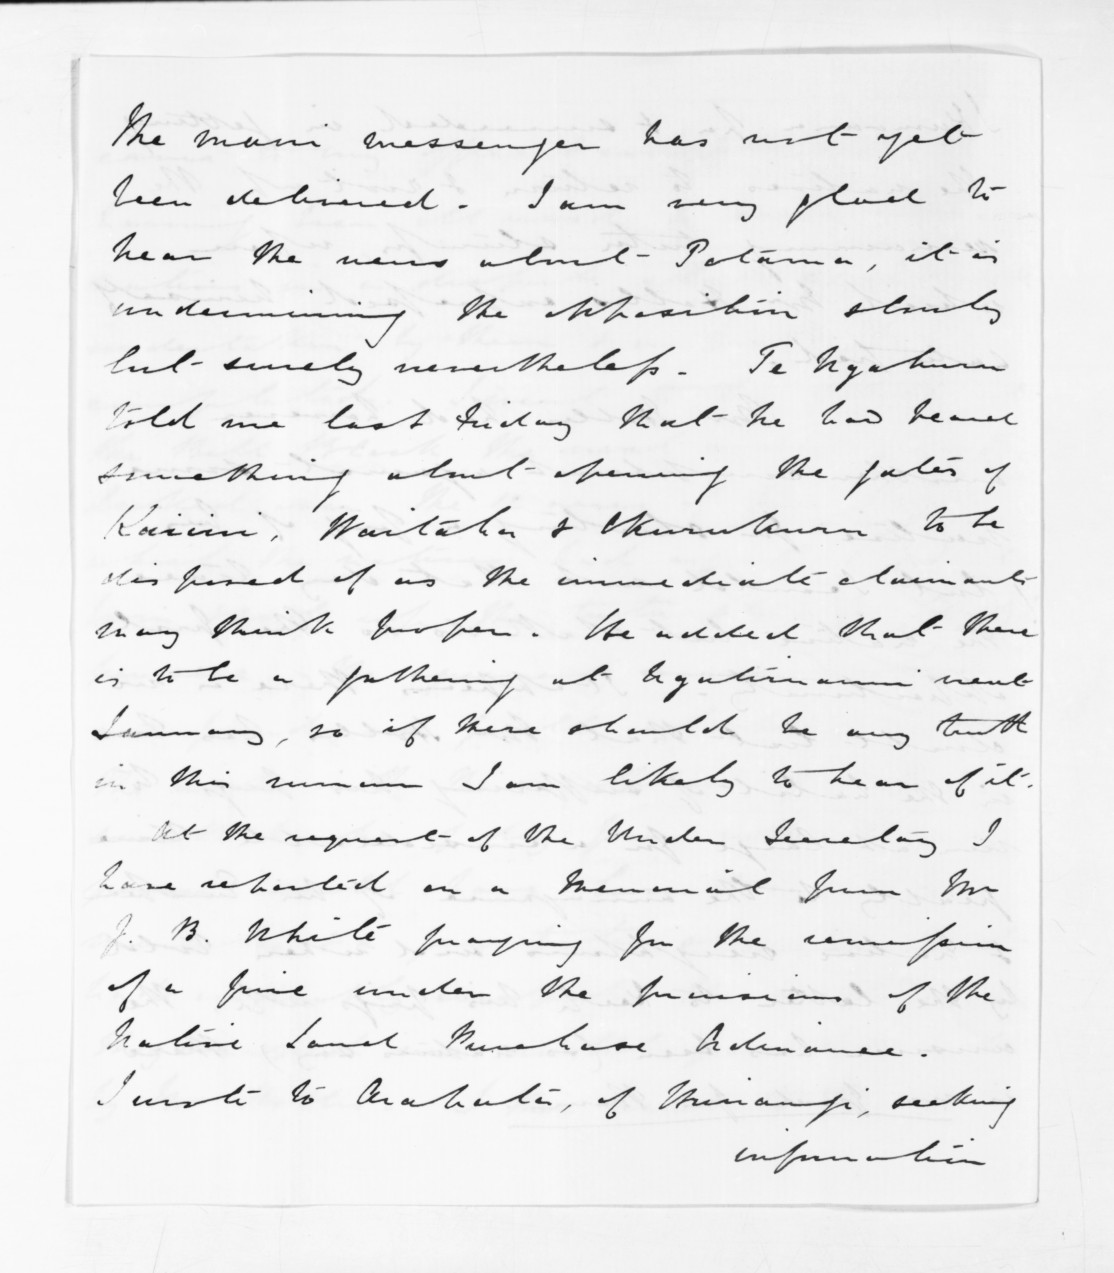 The maori messenger has not yet
been delivered. I am very glad to
hear the news about Potama, it is
undermining the opposition slowly
but surely nevertheless. Te Ngahuru
told me last Friday that he had heard
something about opening the gates of
Kaiiwi, Waitaha & Okurukuru to be
disposed of as the immediate claimants
may think proper. He added that there
is to be a gathering at Ngatimaru next
January, so if there should be any truth
in this rumour I am likely to hear of it.
At the request of the Under Secretary I
have reported on a Memorial from Mr
J. B. White praying for the remission
of a fine under the provisions of the
Native Land Purchase Ordinance.
I wrote to Arahata, of seeking
information